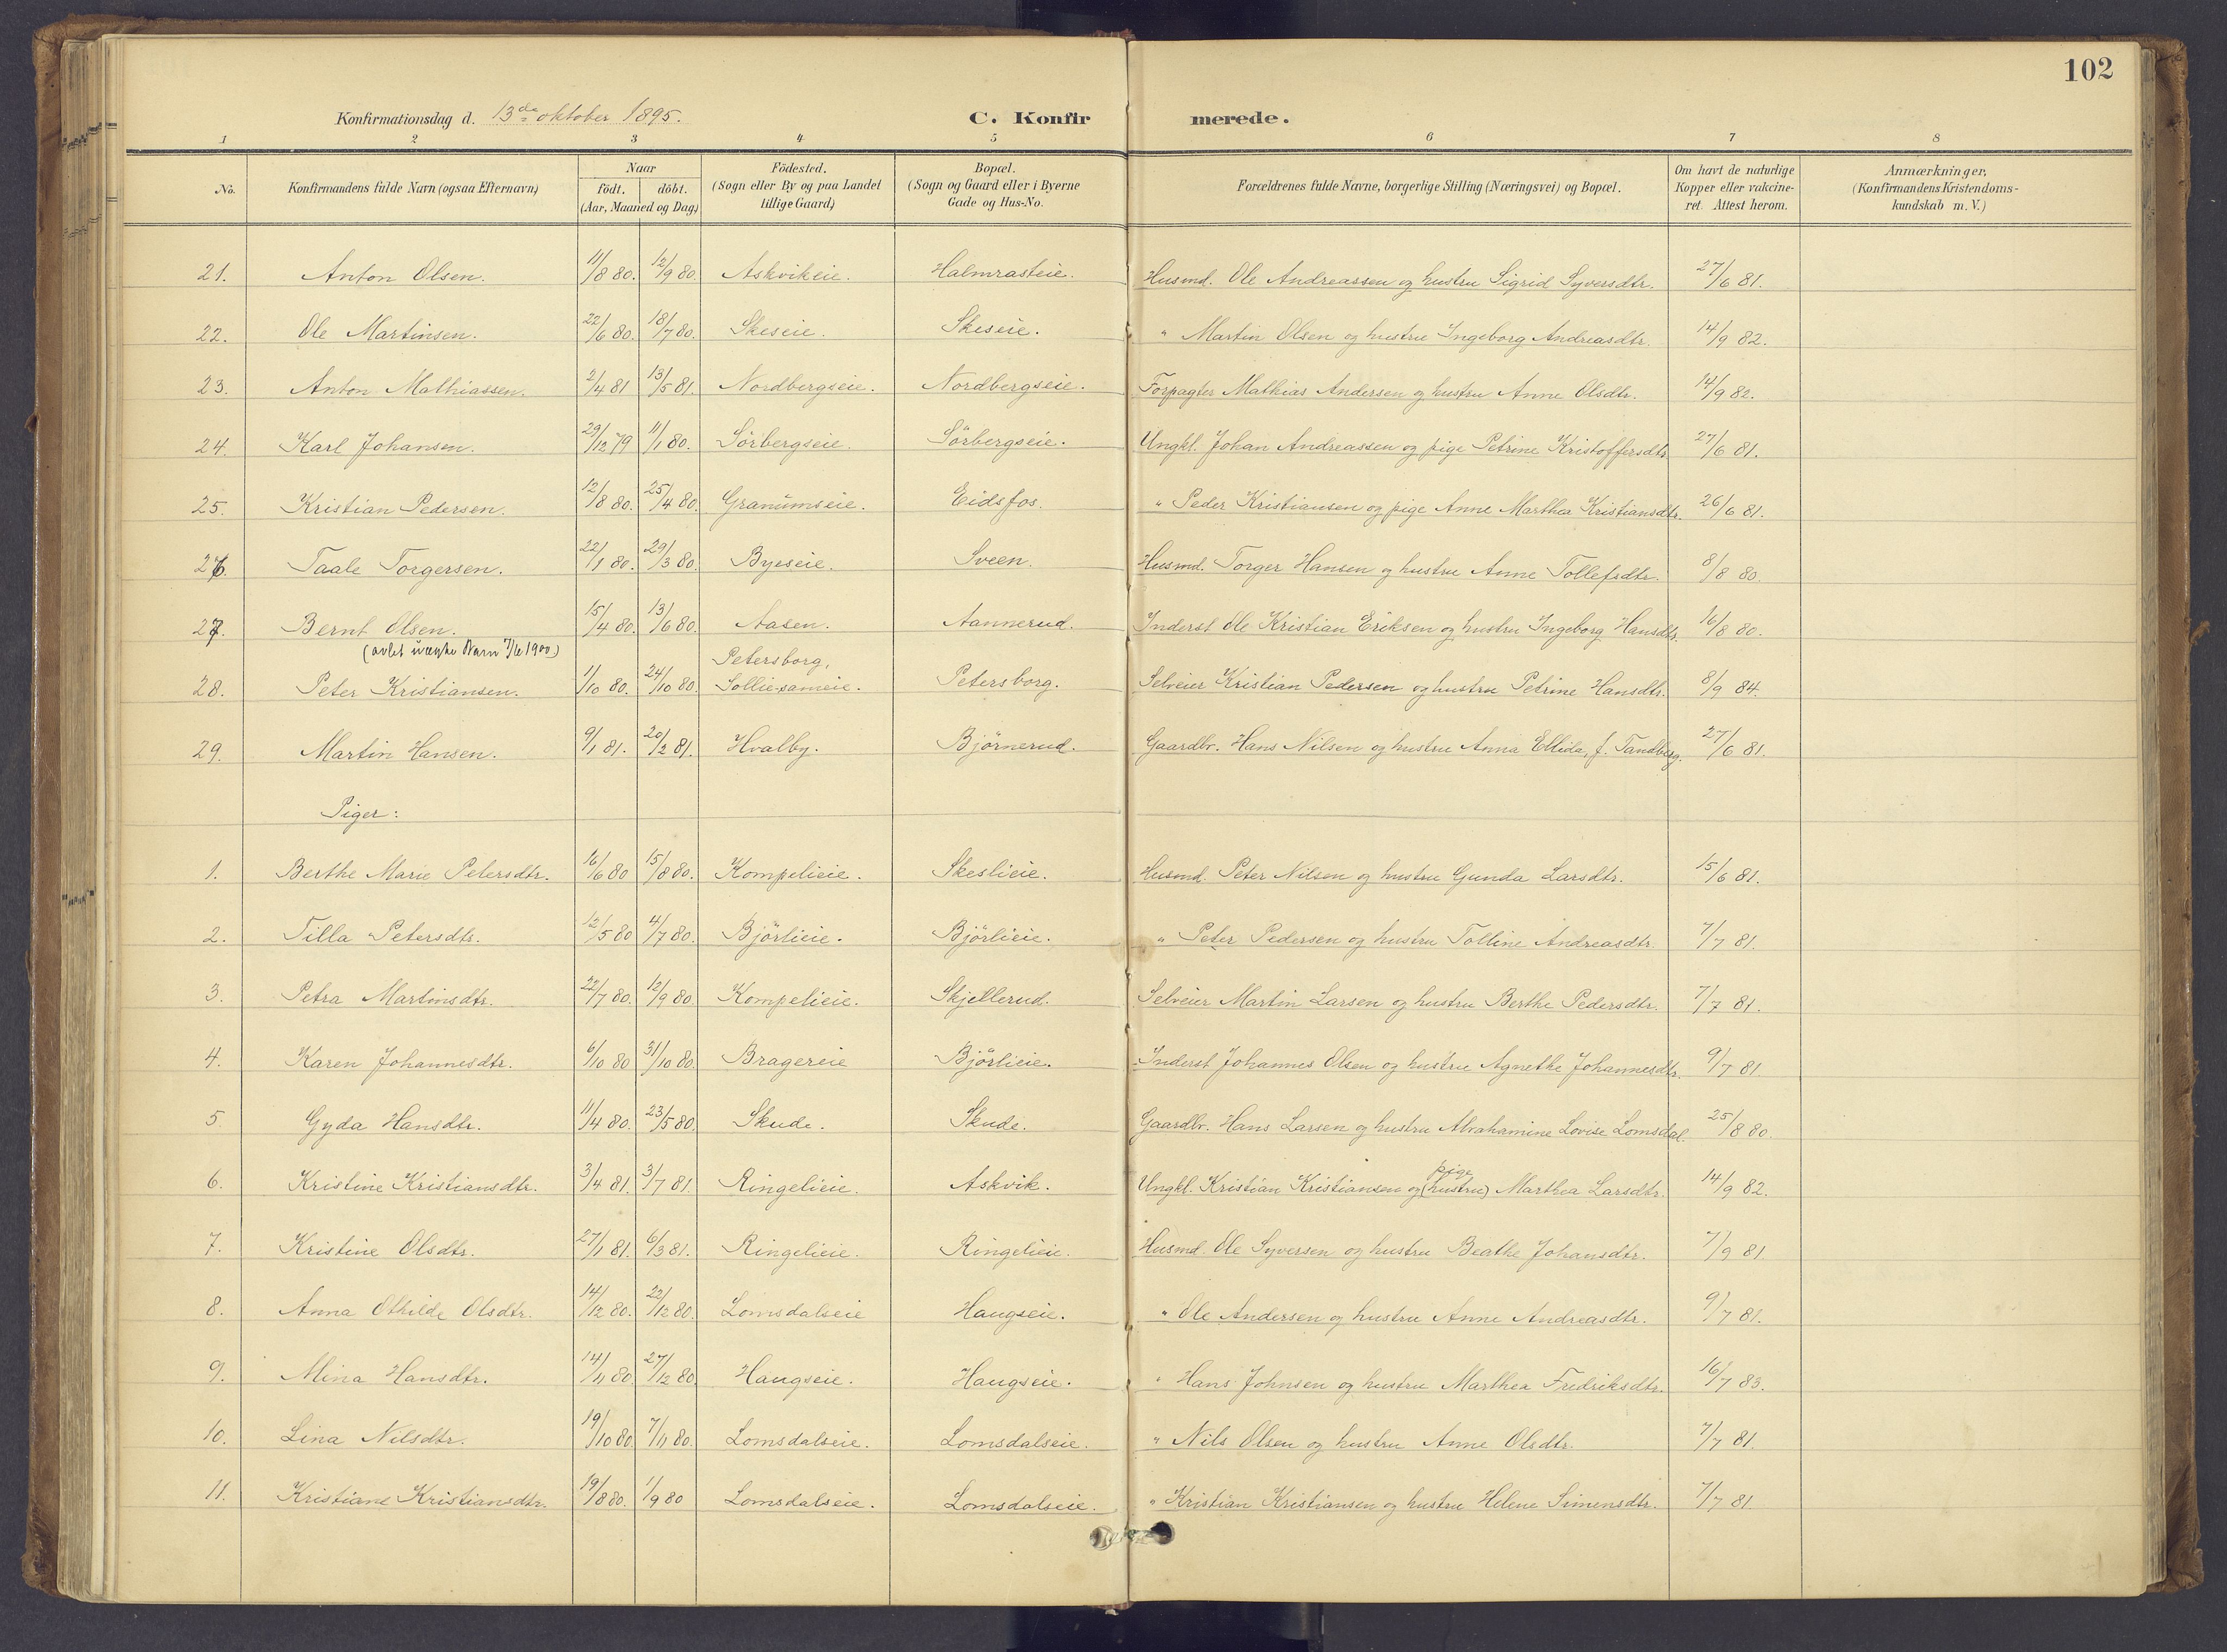 102
Konfirmationsdag d. 13de oktober 1895.
C. Konfirmerede.
1 2 3 4 5 6 7 8
No. Konfirmandens fulde Navn (ogsaa Efternavn) Naar födt. döbt. (Aar, Maaned og Dag) Födested. (Sogn eller By og paa Landet tillige Gaard) Bopæl. (Sogn og Gaard eller i Byerne Gade og Hus-No. Forældrenes fulde Navne, borgerlige Stilling (Næringsvei) og Bopæl. Om havt de naturlige Kopper eller vakcineret. Attest herom. Anmærkninger, (Konfirmandens Kristendomskundskab m.V.)
21. Anton Olsen. 11/8 80. 12/9 80. Askvikeie. Halmrasteie. Husmd. Ole Andreassen og hustru Sigrid Syversdtr. 27/6 81.
22. Ole Martinsen. 22/6 80. 18/7 80. Skeseie. Skeseie. " Martin Olsen og hustru Ingeborg Andreasdtr. 14/9 82.
23. Anton Mathiassen. 2/4 81 13/5 81. Nordbergseie. Nordbergseie. Forpagter Mathias Andersen og hustru Anne Olsdtr. 14/9 82.
24. Karl Johansen. 29/12 79 11/1 80. Sörbergseie. Sörbergseie. Ungkl. Johan Andreassen og pige Petrine Kristoffersdtr. 27/6 81.
25. Kristian Pedersen. 12/8 80. 25/4 80. Granumseie. Eidsfos. " Peder Kristiansen og pige Anne Marthea Kristiansdtr. 26/6 81.
26. Taale Torgersen. 22/1 80. 29/3 80. Byeseie. Sveen. Husmd. Torger Hansen og hustru Anne Tollefsdtr. 8/8 80.
27. Bernt Olsen. 15/4 80. 13/6 80. Aasen. Aannerud. Inderst Ole Kristian Eriksen og hustru Ingeborg Hansdtr. 16/8 80.
28. Peter Kristiansen. 1/10 80. 24/10 80. Petersborg, Sollie sameie. Petersborg. Selveier Kristian Pedersen og hustru Petrine Hansdtr. 8/9 84.
29. Martin Hansen. 9/1 81. 20/2 81. Hvalby. Björnerud. Gaardbr. Hans Nilsen og hustru Anna Ellida, f. Tandberg. 27/6 81.
Piger:
1. Berthe Marie Petersdtr. 16/6 80 15/8 80. Kompelieie. Skeslieie. Husmd. Peter Nilsen og hustru Gunda Larsdtr. 15/6 81.
2. Tilla Petersdtr. 12/5 80 4/7 80. Björlieie. Björlieie. " Peter Pedersen og hustru Tolline Andreasdtr. 7/7 81.
3. Petra Martinsdtr. 22/7 80. 12/9 80. Kompelieie. Skjellerud. Selveier Martin Larsen og hustru Berthe Pedersdtr. 7/7 81.
4. Karen Johannesdtr. 6/10 80 31/10 80. Bragereie Björlieie. Inderst Johannes Olsen og hustru Agnethe Johannesdtr. 9/7 81.
5. Gyda Hansdtr. 11/4 80. 23/5 80. Skude. Skude. Gaardbr. Hans Larsen og hustru Abrahamine Lovise Lomsdal. 25/8 80.
6. Kristine Kristiansdtr. 3/4 81. 3/7 81. Ringelieie. Askvik. Ungkl. Kristian Kristiansen og (hustru) pige Marthea Larsdtr. 14/9 82.
7. Kristine Olsdtr. 27/1 81. 6/3 81. Ringelieie. Ringelieie. Husmd. Ole Syversen og hustru Beathe Johansdtr. 7/9 81.
8. Anna Othilde Olsdtr. 14/12 80. 22/12 80. Lomsdalseie Haugseie. " Ole Andersen og hustru Anne Andreasdtr. 9/7 81.
9. Mina Hansdtr. 14/11 80. 27/12 80 Haugseie. Haugseie. " Hans Johnsen og hustru Marthea Fredriksdtr. 16/7 83.
10. Lina Nilsdtr. 19/10 80. 7/11 80. Lomsdalseie. Lomsdalseie. " Nils Olsen og hustru Anne Olsdtr. 7/7 81.
11. Kristiane Kristiansdtr. 19/8 80. 1/9 80 Lomsdalseie. Lomsdalseie. " Kristian Kristiansen og hustru Helene Simensdtr. 7/7 81.